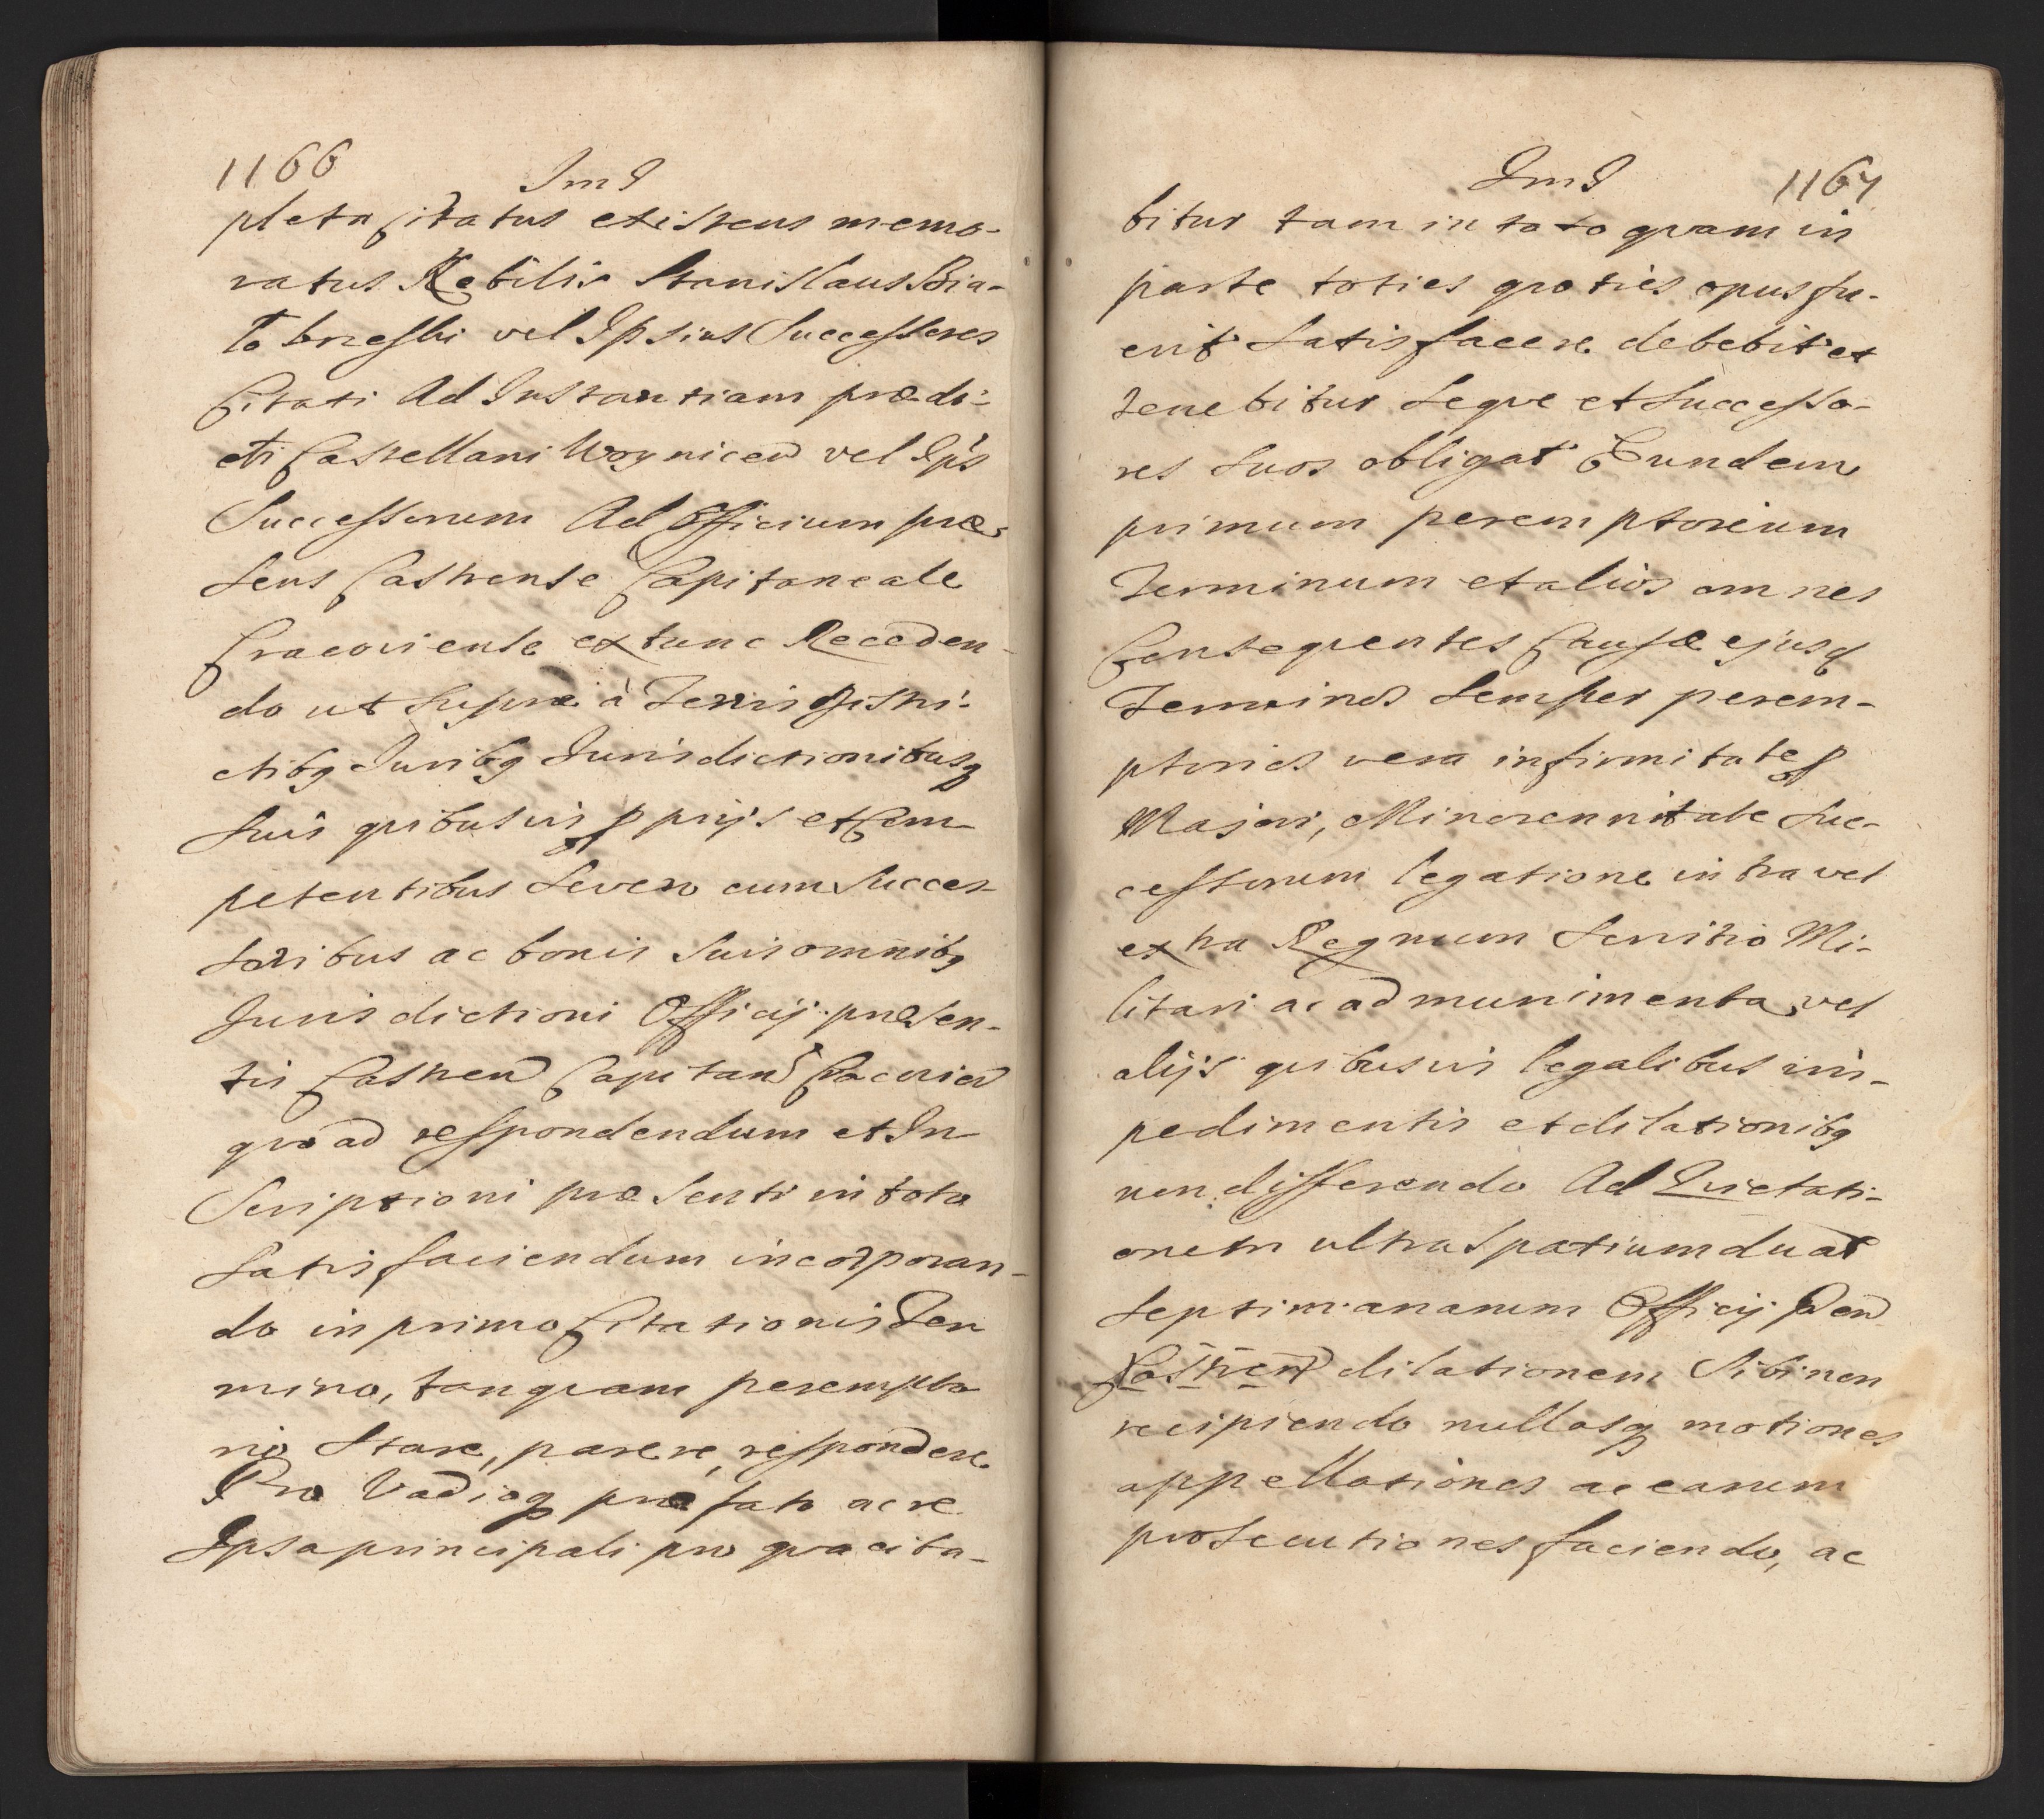 1166
JmJ
pleta Citatus existens memo-
ratus Nobilis Stanislaus Bia-
to brzeski vel Ipsius Successores
Citati Ad Instantiam prædi-
cti Castellani Woynicen vel Ips
Successorum Ad Officium præ
sens Castrense Capitaneale
Cracoviense extunc Receden-
do ut supra à Terris Distri-
ctibq Juribq Jurisdictionibusq
suis quibusvis pprijs et Com
petentibus Severo cum Succes-
soribus ac bonis suis omnibq
Jurisdictioni Officij præsen-
tis Castren Capitan Cracovien
quoad respondendum et In
Scriptioni præsenti in toto
Satisfaciendum incorporan-
do in primo Citationis Ter
mino, tanquam perempto
rio stare, parere, respondere
Pro Vadioq præfato ac re
Ipsa principali pro qua cita-
JmJ
1167
bitur tam in toto quam in
parte toties quoties opus fu-
erit Satisfacere debebit et
tenebitur Seque et Successo-
res suos obligat Eundem
primum peremptorium
Terminum et alios omnes
Consequentes Causæ ejusq
Terminos semper perem-
ptorios vera infirmitate p
Majori, Minorennitate Suc-
cessorum legatione intra vel
extra Regnum servitio Mi-
litari ac ad munimenta vel
alijs quibusvis legalibus im-
pedimentis et dilationibq
non differendo Ad Quietati-
onem ultra spatium duar
septimanarum Officij Pen
Castren dilationem Sibi non
recipiendo nullasq motiones
appellationes ac earum
prosecutiones faciendo, ac